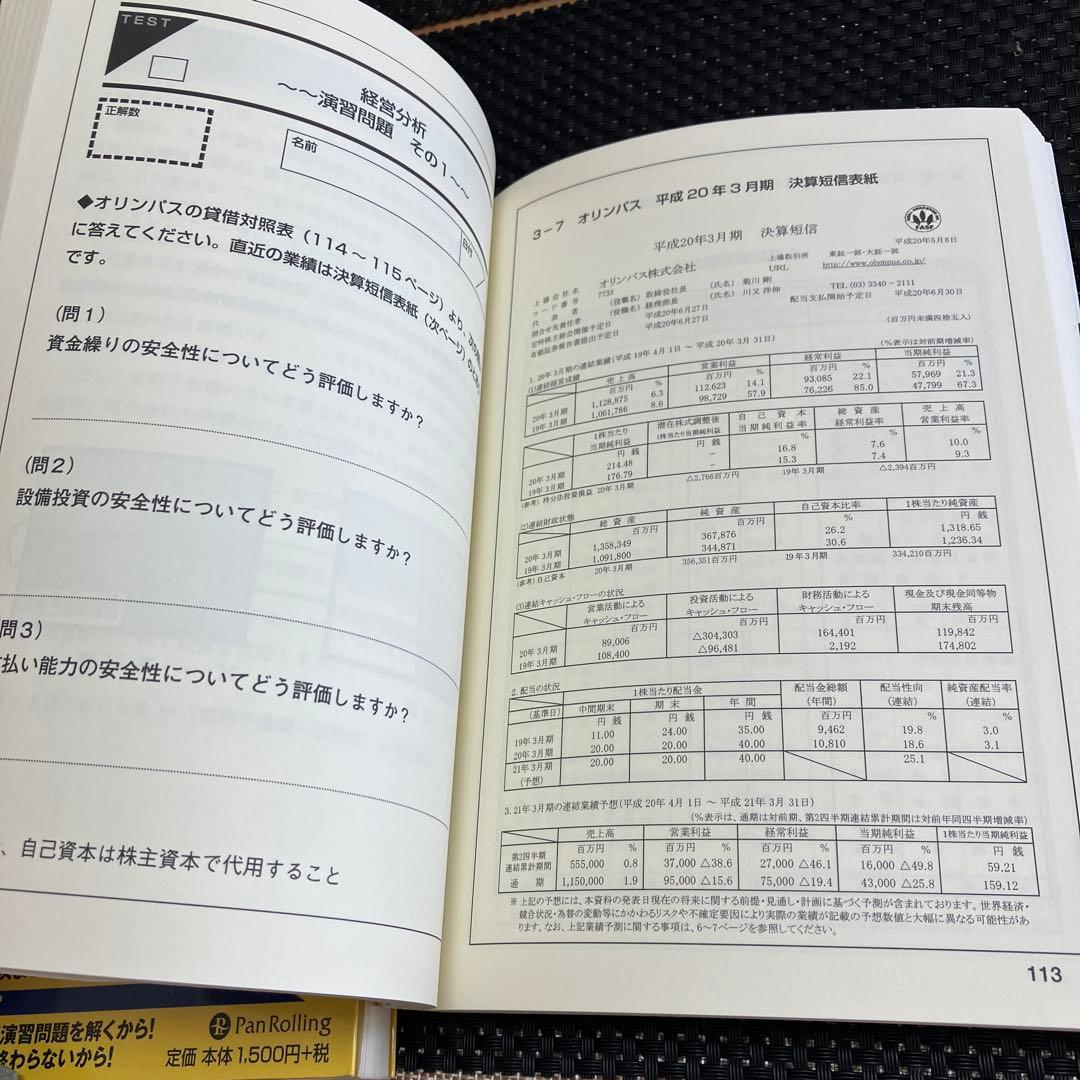 TEST
経営分析
～～演習問題 その1～～
正解数
名前
日付
◆オリンパスの貸借対照表（114～115ページ）より、
に答えてください。直近の業績は決算短信表紙（次ページ）の
です。
（問1）
資金繰りの安全性についてどう評価しますか？
（問2）
設備投資の安全性についてどう評価しますか？
問3）
払い能力の安全性についてどう評価しますか？
、自己資本は株主資本で代用すること
演習問題を解くから！
終わらないから！
PanRolling
定価 本体1,500円+税
3-7 オリンパス 平成20年3月期 決算短信表紙
平成20年3月期 決算短信
FASF
平成20年5月8日
上場会社名 オリンパス株式会社 上場取引所 東証一部・大証一部
コード番号 7733 URL http://www.olympus.co.jp/
代表者 (役職名) 取締役社長 (氏名) 菊川 剛
問合せ先責任者 (役職名) 経理部長 (氏名) 川又 洋伸 TEL (03) 3340-2111
定時株主総会開催予定日 平成20年6月27日 配当支払開始予定日 平成20年6月30日
有価証券報告書提出予定日 平成20年6月27日
(百万円未満四捨五入)
1. 20年3月期の連結業績(平成19年4月1日～平成20年3月31日)
(1)連結経営成績 (%表示は対前期増減率)
売上高 営業利益 経常利益 当期純利益
百万円 % 百万円 % 百万円 % 百万円 %
20年3月期 1,128,875 6.3 112,623 14.1 93,085 22.1 57,969 21.3
19年3月期 1,061,786 8.6 98,729 57.9 76,226 85.0 47,799 67.3
1株当たり当期純利益 潜在株式調整後1株当たり当期純利益 自己資本当期純利益率 総資産経常利益率 売上高営業利益率
円 銭 円 銭 % % %
20年3月期 214.48 - 16.8 7.6 10.0
19年3月期 176.79 - 15.3 7.4 9.3
(参考) 持分法投資損益 20年3月期 △2,766百万円 19年3月期 △2,394百万円
(2)連結財政状態
総資産 純資産 自己資本比率 1株当たり純資産
百万円 百万円 % 円 銭
20年3月期 1,358,349 367,876 26.2 1,318.65
19年3月期 1,091,800 344,871 30.6 1,236.34
(参考) 自己資本 20年3月期 356,351百万円 19年3月期 334,210百万円
(3)連結キャッシュ・フローの状況
営業活動によるキャッシュ・フロー 投資活動によるキャッシュ・フロー 財務活動によるキャッシュ・フロー 現金及び現金同等物期末残高
百万円 百万円 百万円 百万円
20年3月期 89,006 △304,303 164,401 119,842
19年3月期 108,400 △96,481 2,192 174,802
2. 配当の状況
1株当たり配当金 配当金総額(年間) 配当性向(連結) 純資産配当率(連結)
(基準日) 中間期末 期末 年間
円 銭 円 銭 円 銭 百万円 % %
19年3月期 11.00 24.00 35.00 9,462 19.8 3.0
20年3月期 20.00 20.00 40.00 10,810 18.6 3.1
21年3月期(予想) 20.00 20.00 40.00 25.1
3. 21年3月期の連結業績予想(平成20年4月1日～平成21年3月31日)
(%表示は、通期は対前期、第2四半期連結累計期間は対前年同四半期増減率)
売上高 営業利益 経常利益 当期純利益 1株当たり当期純利益
百万円 % 百万円 % 百万円 % 百万円 % 円 銭
第2四半期連結累計期間 555,000 0.8 37,000 △38.6 27,000 △46.1 16,000 △49.8 59.21
通期 1,150,000 1.9 95,000 △15.6 75,000 △19.4 43,000 △25.8 159.12
※上記の予想には、本資料の発表日現在の将来に関する前提・見通し・計画に基づく予測が含まれております。世界経済・
競合状況・為替の変動等にかかわるリスクや不確定要因により実際の業績が記載の予想数値と大幅に異なる可能性があ
ります。なお、上記業績予測に関する事項は、6～7ページを参照してください。
113